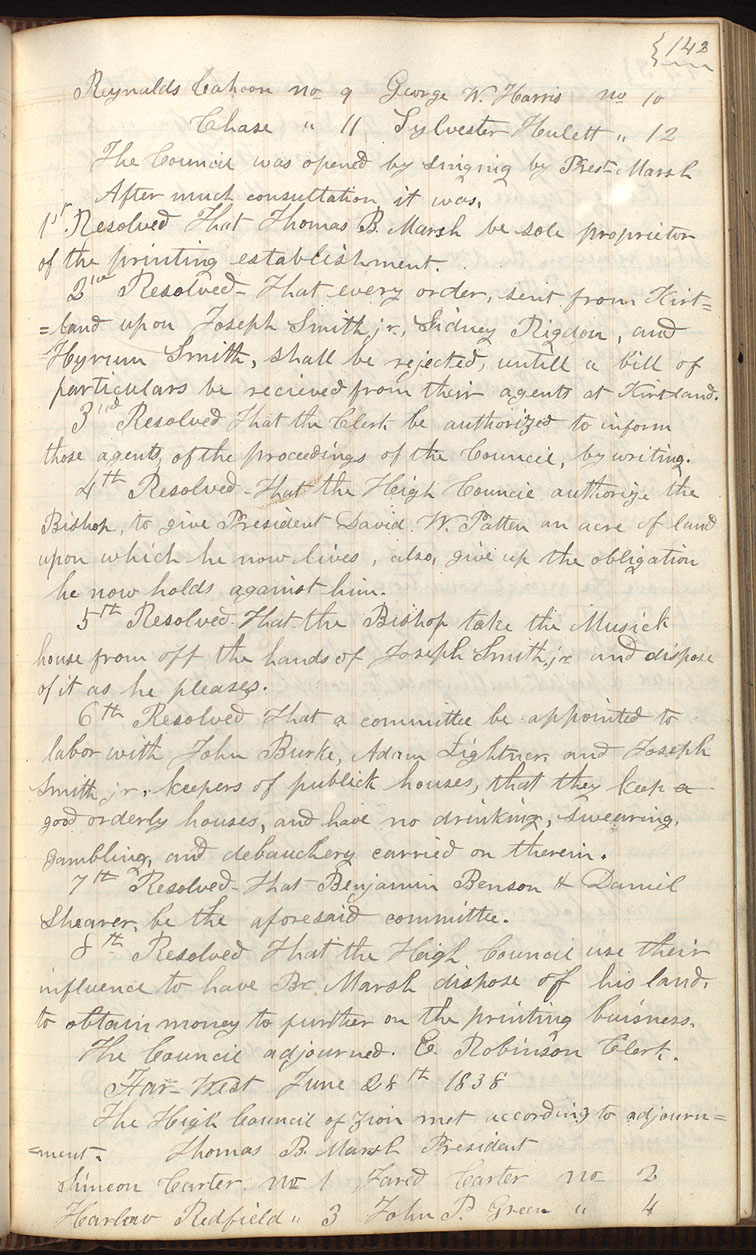 {142
Reynalds Cahoon no 9 George W. Harris no 10
Chase " 11, Sylvester Hulett " 12
The Council was opened by singing by Prest Marsh
After much consultation, it was,
1st Resolved That Thomas B. Marsh be sole proprietor
of the printing establishment.
2nd Resolved- That every order, sent from Kirt=
=land upon Joseph Smith jr, Sidney Rigdon, and
Hyrum Smith, shall be rejected, untill a bill of
particulars be recieved from their agents at Kirtland.
3rd Resolved That the Clerk be authorized to inform
those agents, of the proceedings of the Council, by writing.
4th Resolved- That the Heigh Council authorize the
Bishop, to give President David W. Patten an acre of land
upon which he now lives, also, give up the obligation
he now holds against him.
5th Resolved- That the Bishop take the Musick
house from off the hands of Joseph Smith jr and dispose
of it as he pleases.
6th Resolved That a committee be appointed to
labor with John Burke, Adam Lightner, and Joseph
Smith jr, keepers of publick houses, that they keep a
good orderly houses, and have no drinking, swearing,
gambling, and debauchery carried on therein.
7th Resolved- That Benjamin Benson & Daniel
Shearer, be the aforesaid committee.
8th Resolved That the Heigh Council use their
influence to have Br Marsh dispose of his land,
to obtain money to further on the printing buisness.
The Council adjourned. E. Robinson Clerk.
Far-West June 28th 1838
The High Council of Zion met according to adjourn=
=ment. Thomas B. Marsh President
Simeon Carter, no 1 Jared Carter no 2
Harlow Redfield " 3 John P. Green " 4